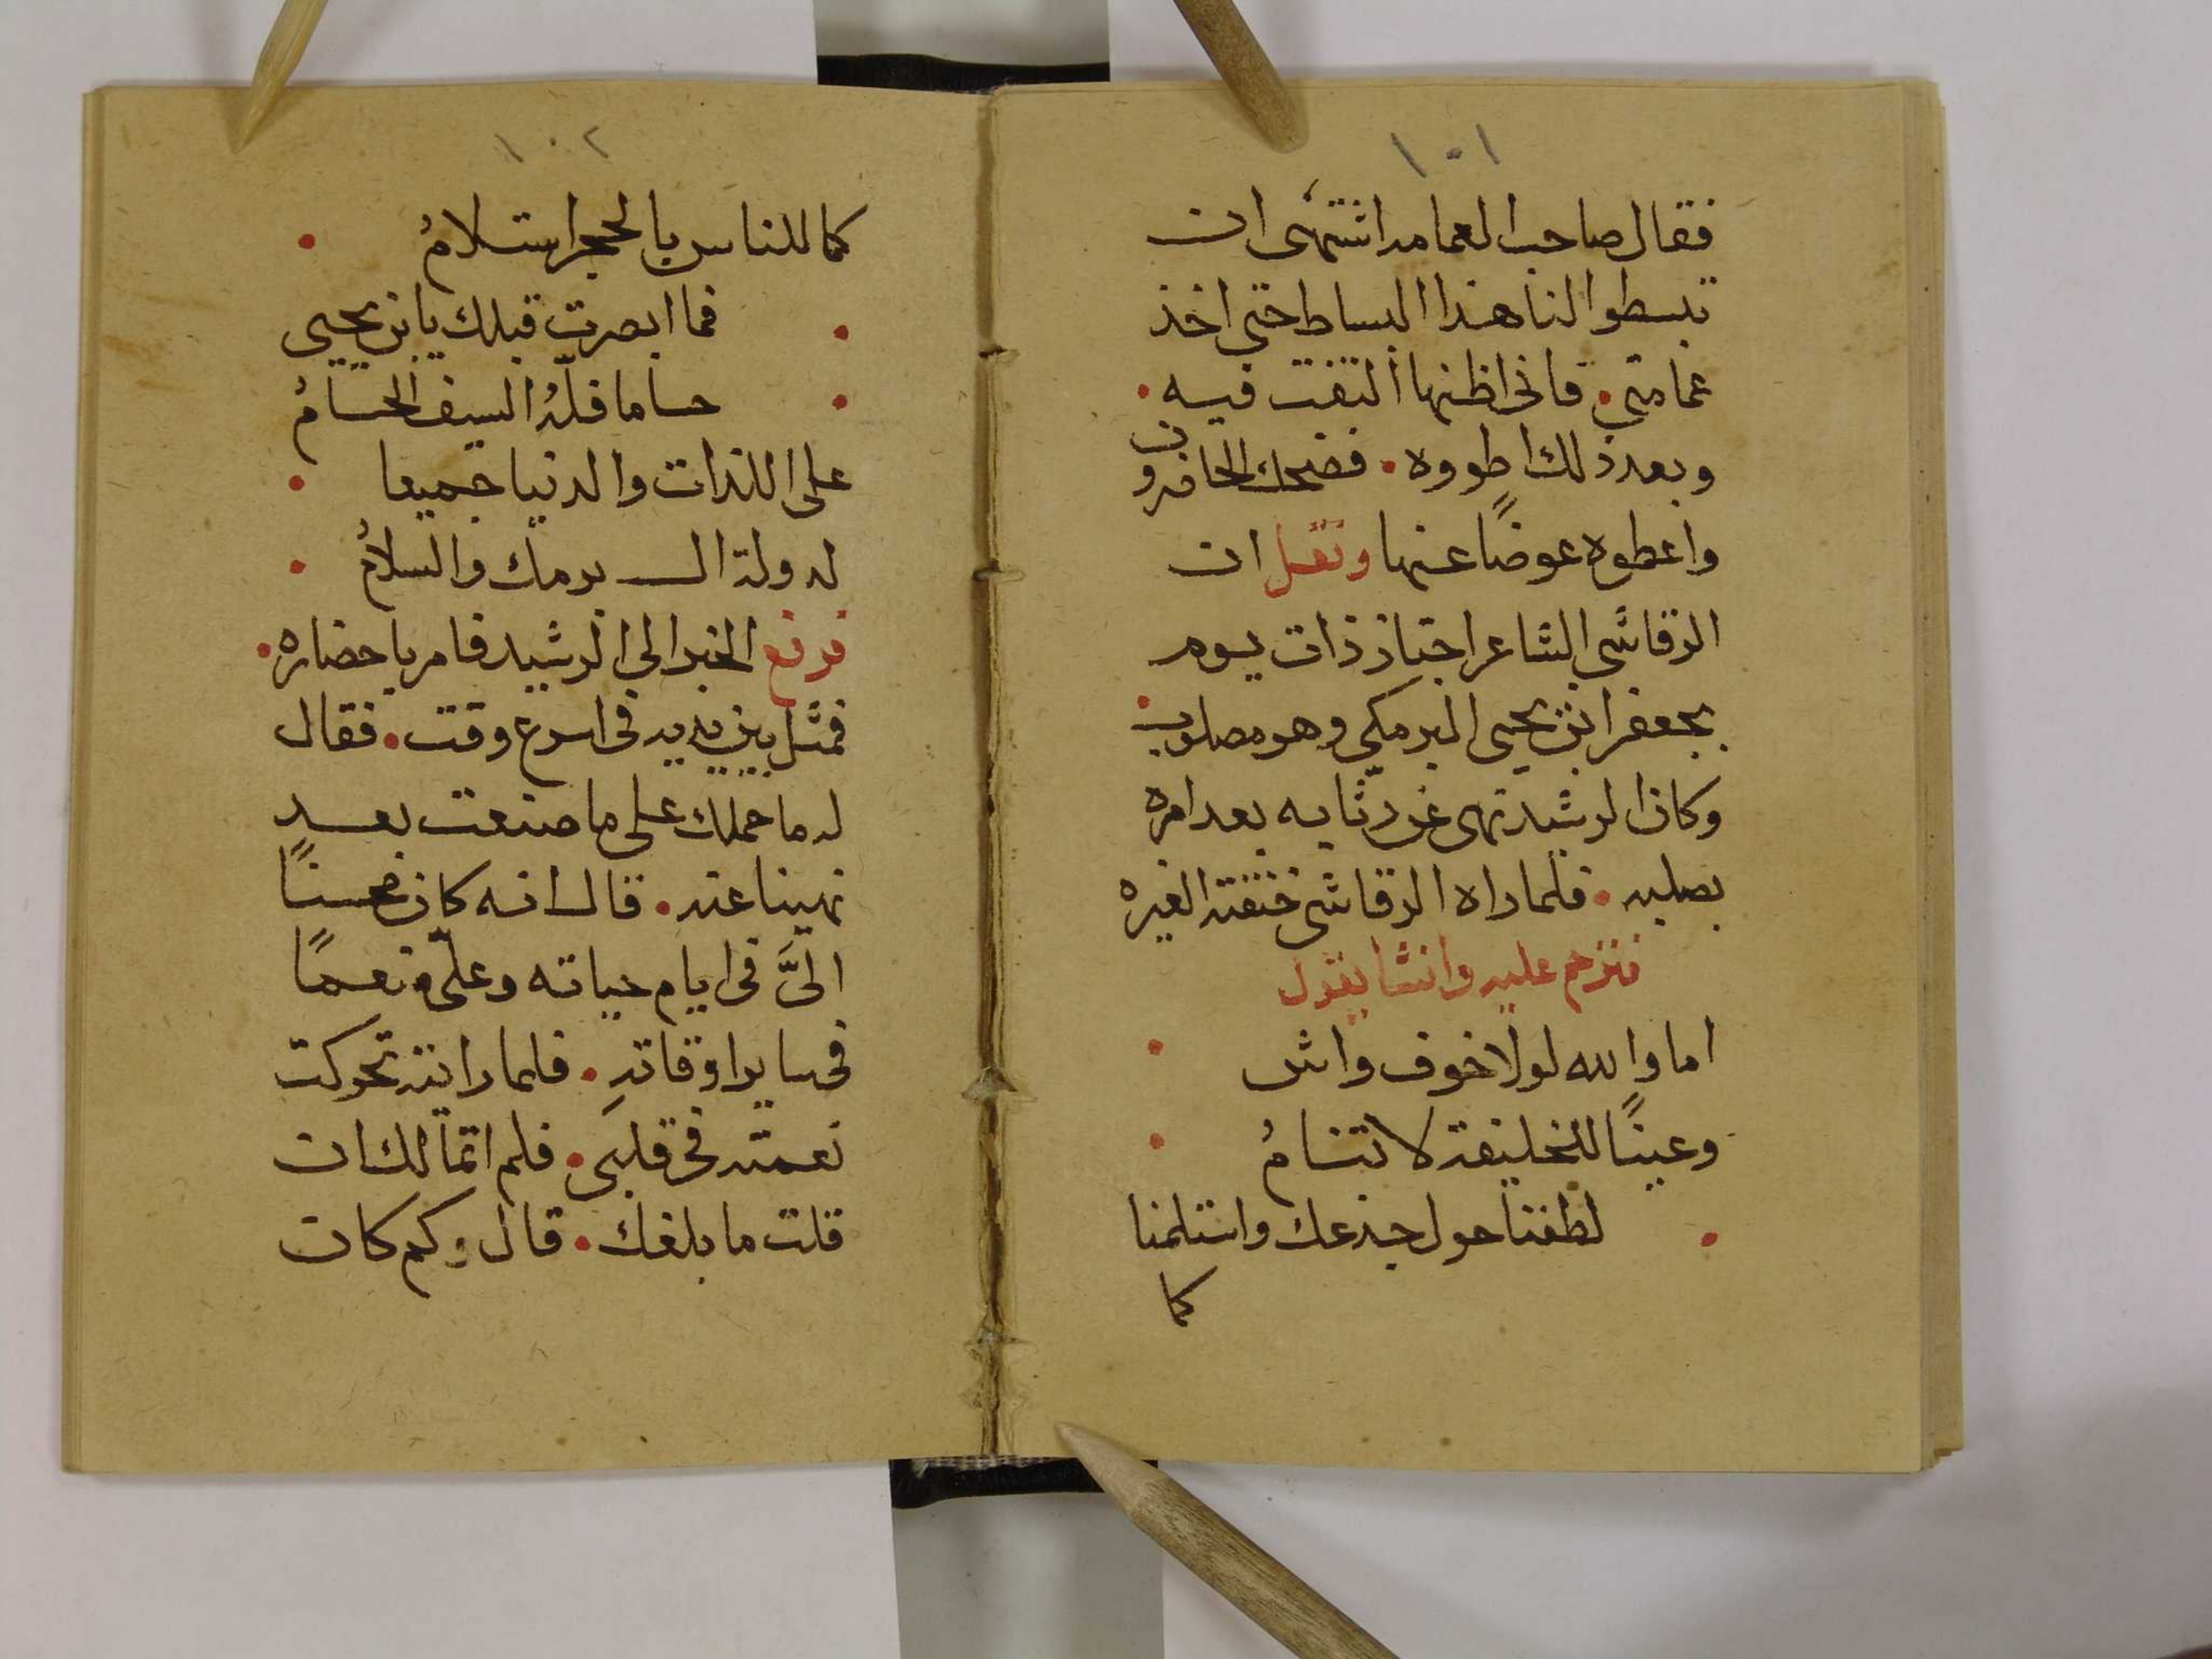 ١٠١
فقال صاحب العمامه اشتهى ان
تبسطوا لنا هذا البساط حتى اخذ
عمامتي • فاني اظنها التفت فيه •
وبعد ذلك اطووه • فضحك الحاضرون
واعطوه عوضًا عنها ونقل ان
الرقاشي الشاعر اجتاز ذات يوم
بجعفر ابن يحيى البرمكي وهو مصلوب •
وكان الرشيد نهى عن رثايه بعد امره
بصلبه • فلما راه الرقاشي خنقته العبره
فترحم عليه وانشا يقول
اما والله لولا خوف واش •
وعينًا للخليفة لا تنامُ •
• لطفنا حول جذعك واستلمنا
كما
١٠٢
كما للناس بالحجر استلامُ •
• فما ابصرت قبلك يا بن يحيى
• حساما فلّهُ السيف الحسامُ
على اللذات والدنيا جميعا •
لدولة ال برمك والسلامُ •
فرفع الخبر الى الرشيد فامر باحضاره •
فمثل بين يديه في اسرع وقت • فقال
له ما حملك على ما صنعت بعد
نهينا عنه • قال انه كان محسنًا
الىَّ في ايام حياته وعلىّ منعمًا
في ساير اوقاتهِ • فلما رايته تحركت
نعمته في قلبي • فلم اتمالك ان
قلت ما بلغك • قال وكم كان